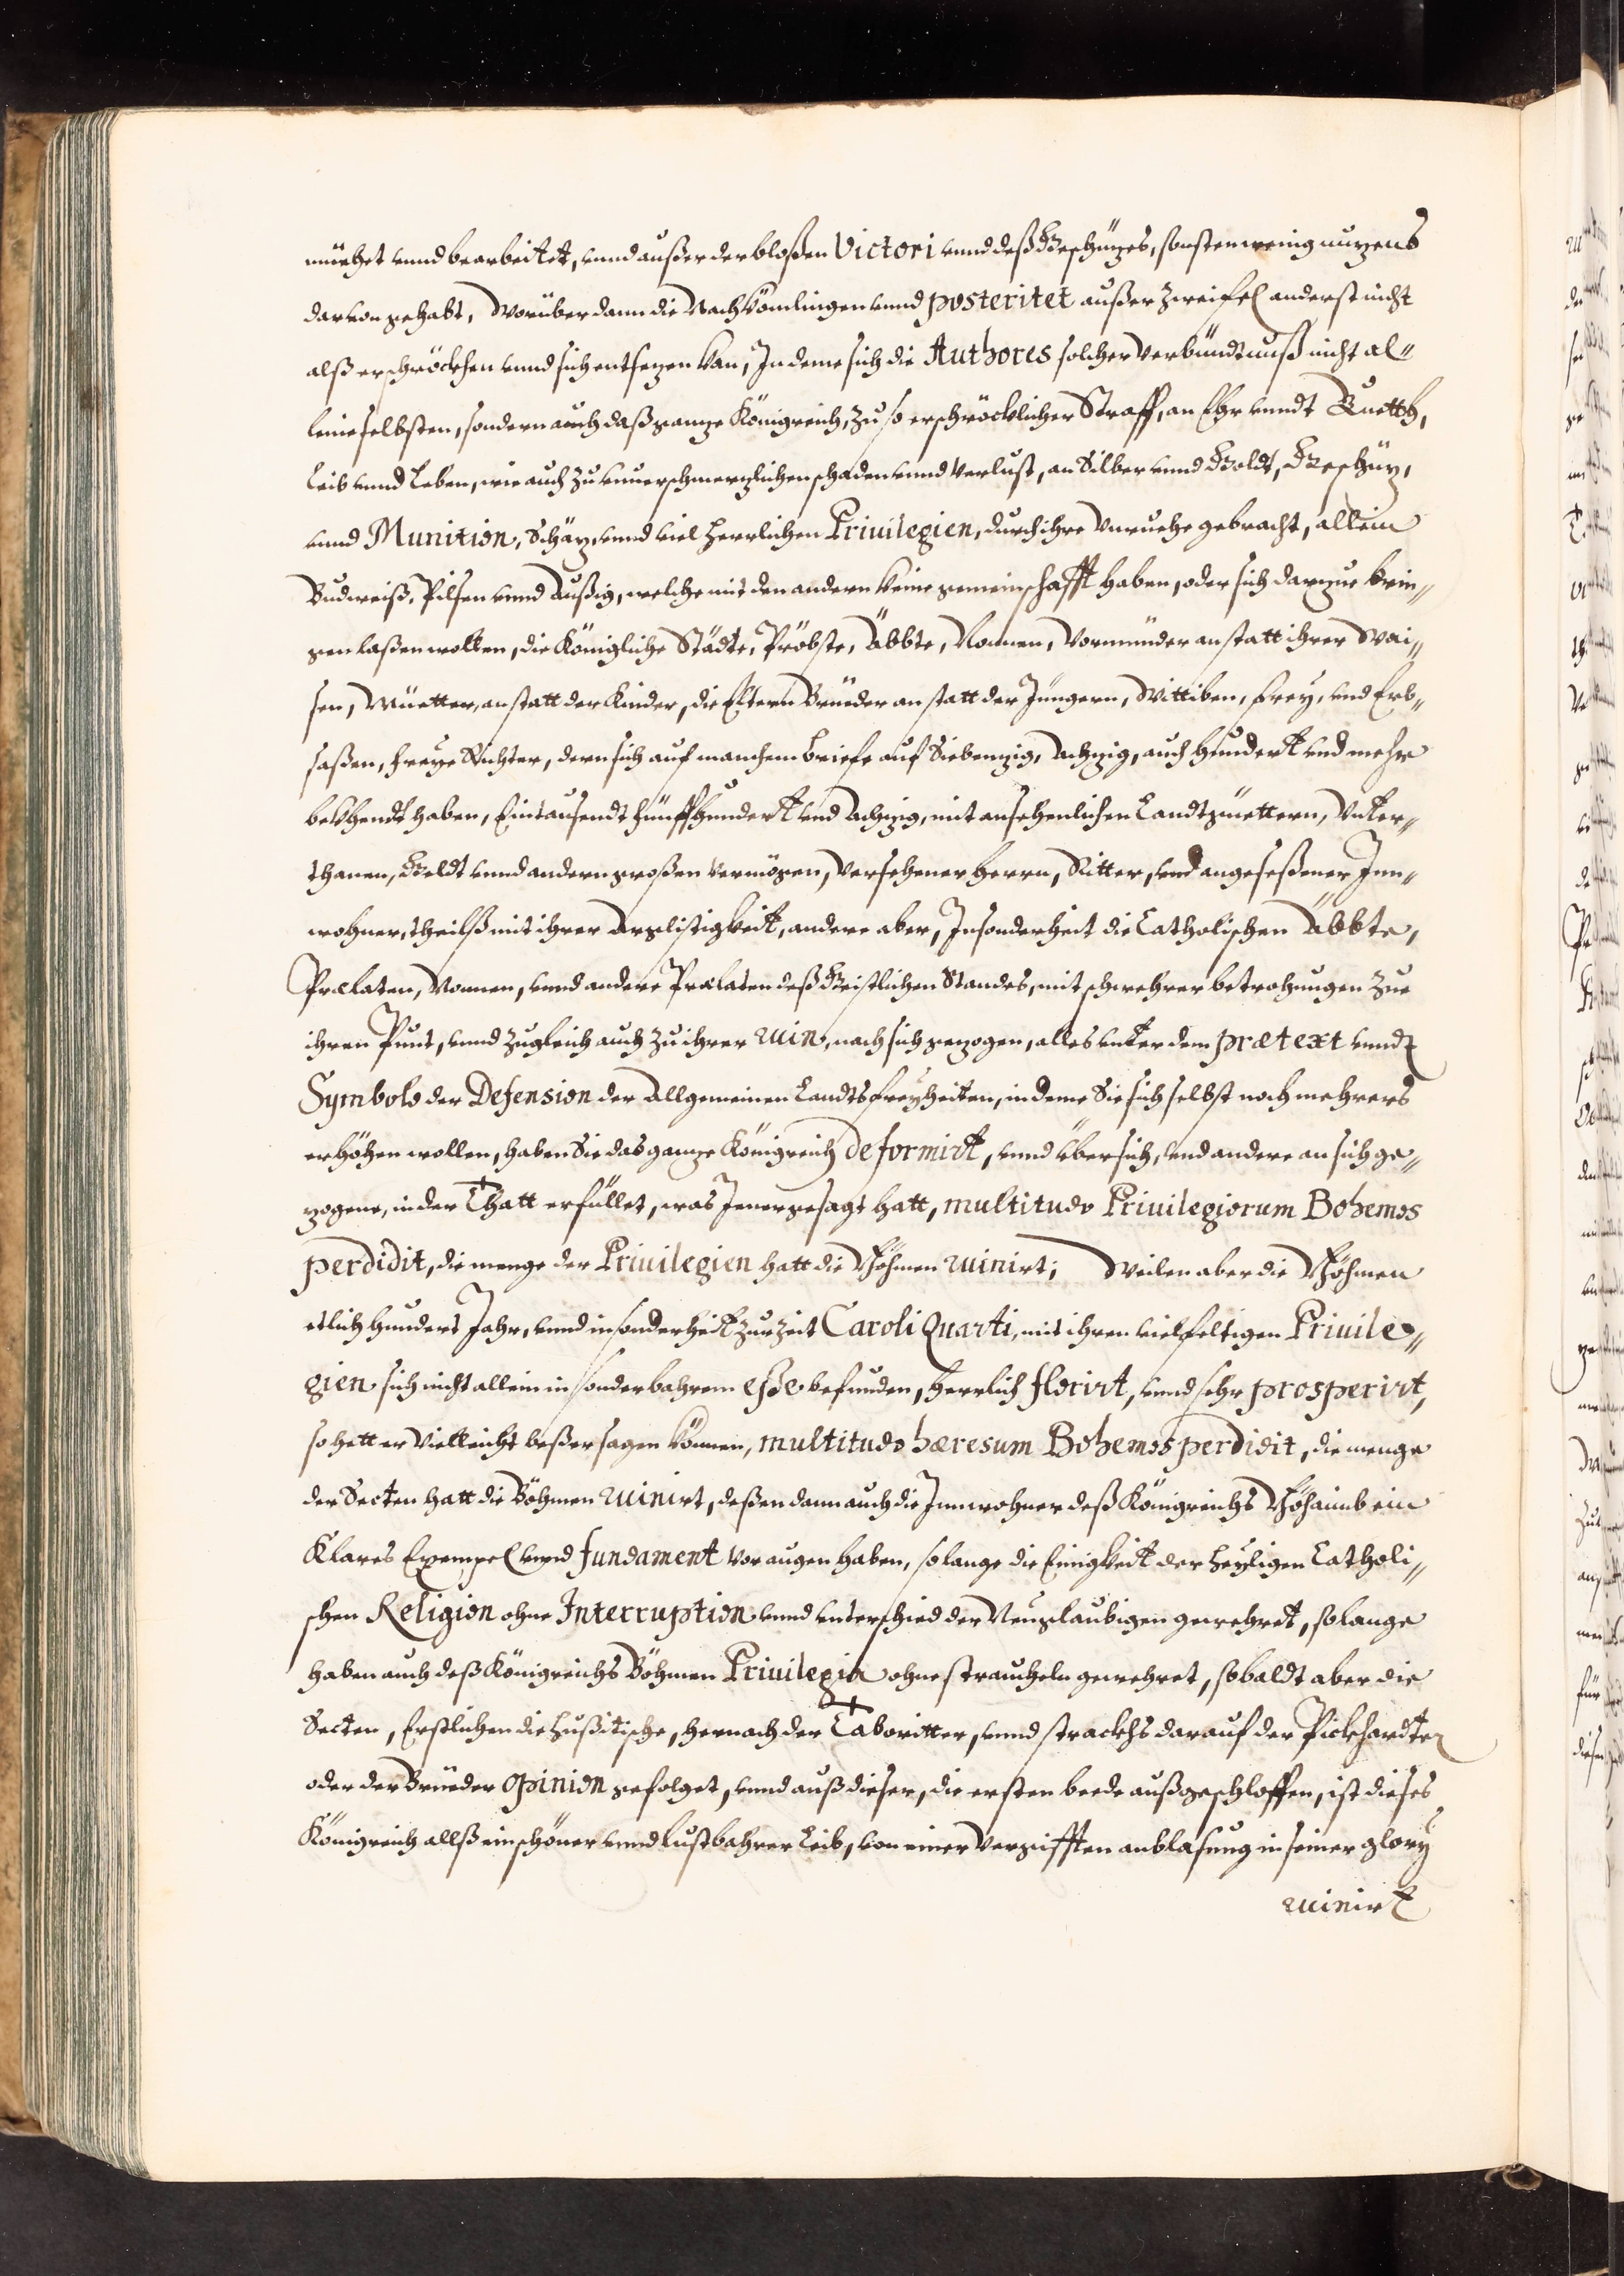 müehet unnd bearbeitet, unnd außer der bloßen Victori unnd deß Geschüzes, sonsten wenig nuzens
darvon gehabt, Worüber dann die Nachkömlingen unnd posteritet außer zweifel anderst nicht
alß erschröckhen unnd sich entsezen kan, In deme sich die Authores solcher Verbündtnuß nicht al„
leine selbsten, sondern auch daß ganze Königreich, zu so erschröcklicher Straff, an Ehr unndt Guetth,
Leib unnd Leben, wie auch zu unuerschmerzlichen schaden unnd Verlust, an Silber unnd Goldt, Geschüz,
unnd Munition, Schäz, unnd viel herrlichen Priuilegien, durch ihre Unruehe gebracht, allein
Budweiß, Pilsen unnd Außig, welche mit den andern keine gemeinschafft haben, oder sich darzue brin„
gen laßen wolten, die Königliche Städte, Pröbste, Äbbte, Nonnen, Vormünder anstatt ihrer Wai„
sen, Müetter, anstatt der Kinder, die Eltern Brüeder anstatt der Jüngern, Wittiben, Frey, und Erb„
saßen, Freye Richter, dern sich auf manchem briefe auf Siebenzig, Achzig, auch hundert und mehr
bekhendt haben, Eintausendt fünffhundert und Achzig, mit ansehenlichen Landtgüettern, Unter„
thanen, Geldt unnd andern großen Vermögen, Versehener Herrn, Ritter, und angeseßener Inn„
wohner, theilß mit ihrer Arglistigkeit, andere aber, Insonderheit die Catholischen Äbbte,
Prælaten, Nonnen, unnd andere Prælaten deß Geistlichen Standes, mit schwehrer betrohungen zue
ihren Punt, unnd zugleich auch zu ihrer ruin, nach sich gezogen, alles unter dem prætext unnd
Symbolo der Defension der Allgemeinen Landtsfreyheiten, in deme Sie sich selbst noch mehrers
erhöhen wollen, haben Sie das ganze Königreich deformirt, unnd über sich, und andere an sich ge„
zogene, in der Thatt erfüllet, was Jener gesagt hatt, multitudo Priuilegiorum Bohemos
perdidit, die menge der Priuilegien hatt die Böhmen ruinirt; Weilen aber die Böhmen
etlich hundert Jahr, unnd insonderheit zur Zeit Caroli Quarti, mit ihren vielfeltigen Priuile„
gien sich nicht allein in sonderbahrem eße befunden, herrlich florirt, unnd sehr prosperirt,
so hett er Vielleicht beßer sagen können, multitudo hæresum Bohemos perdidit, die menge
der Secten hatt die Böhmen ruinirt, deßen dann auch die Innwohner deß Königreichs Böhaimb ein
Klares Exempel unnd fundament vor augen haben, so lange die Einigkeit der Heyligen Catholi„
schen Religion ohne Interruption unnd unterschied der Neuglaubigen gewehret, so lange
haben auch deß Königreichs Böhmen Priuilegia ohne straucheln gewehret, sobaldt aber die
Secten, Erstlichen die Hußitische, hernach der Taboritter, unnd strackhs darauf der Pickhardten
oder der Brüeder Opinion gefolget, unnd auß dieser, die ersten beede außgeschloffen, ist dieses
Königreich allß ein schöner unnd lustbahrer Leib, von einer Vergifften anblasung in seiner glory
ruinirt